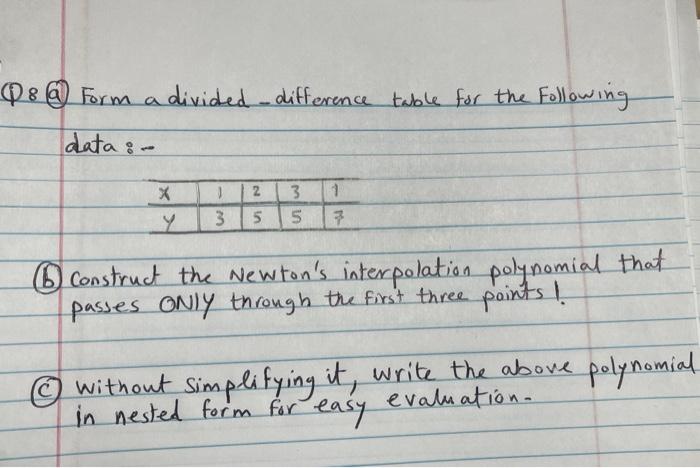 Q8 (a) Form a divided-difference table for the Following
data :-
x 1 2 3 1
y 3 5 5 7
(b) Construct the Newton's interpolation polynomial that
passes ONLY through the first three points!
(c) without simplifying it, write the above polynomial
in nested form for easy evaluation.